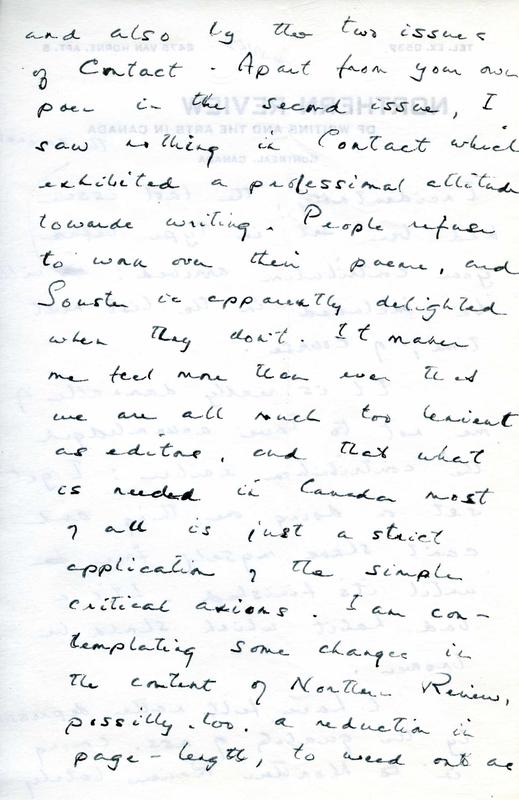 and also by the two issues
of Contact. Apart from your own
poem in the second issue, I
saw nothing in Contact which
exhibited a professional attitude
towards writing. People refuse
to work over their poems, and
Souster is apparently delighted
when they don't. It makes
me feel more than ever that
we are all much too lenient
as editors, and that what
is needed in Canada most
of all is just a strict
application of the simple
critical axioms. I am con-
templating some changes in
the content of Northern Review,
possibly, too, a reduction in
page-length, to weed out as